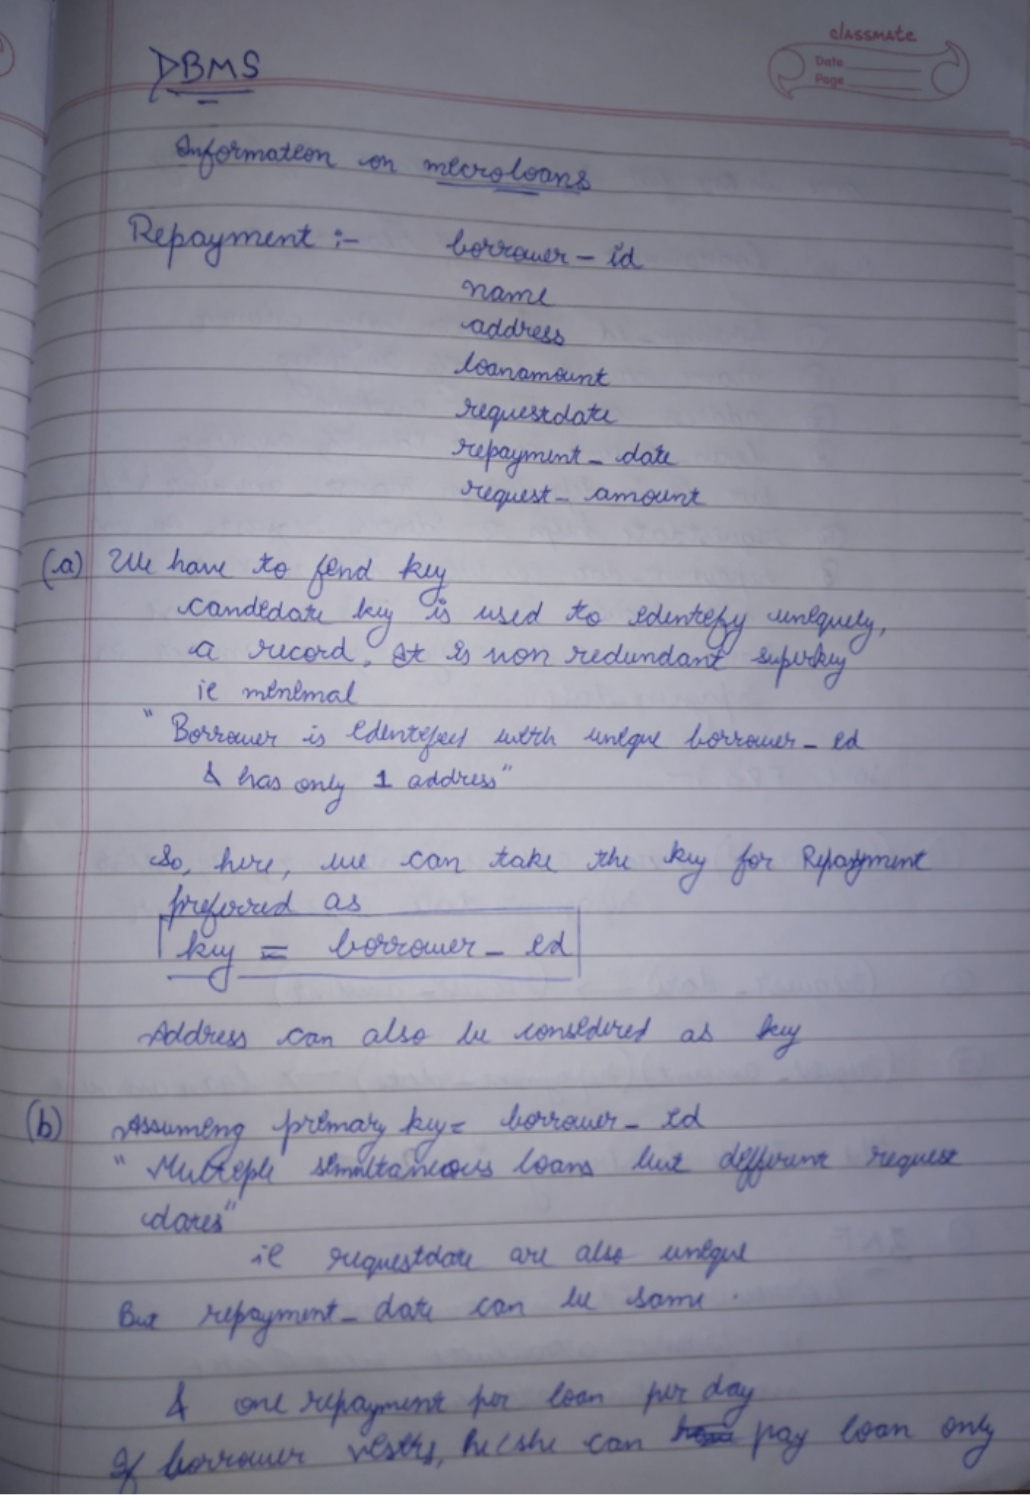 classmate
Date
Page
DBMS
Information on microloans
Repayment :- borrower - id
name
address
loanamount
requestdate
repayment - date
request - amount
(a) We have to find key
candidate key is used to identify uniquely,
a record. It is non redundant superkey
ie minimal
" Borrower is identified with unique borrower - id
& has only 1 address"
So, here, we can take the key for Repayment
preferred as
key = borrower - id
Address can also be considered as key
(b) Assuming primary key = borrower - id
" Multiple simultaneous loans but different request
dates"
ie requestdate are also unique
But repayment - date can be same.
& one repayment per loan per day
If borrower he/she can pay loan only